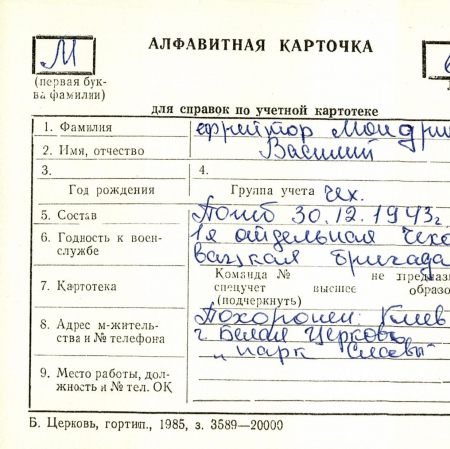 АЛФАВИТНАЯ КАРТОЧКА
М
(первая бук-
ва фамилии)
для справок по учетной картотеке
1. Фамилия ефрейтор Мондри
2. Имя, отчество Василий
3. 4.
Год рождения Группа учета чех.
5. Состав Погиб 30.12.1943г.
6. Годность к воен-
службе 1я отдельная чехо
вацкая бригада
7. Картотека Команда № не предназ
спецучет высшее образо
(подчеркнуть)
8. Адрес м-житель-
ства и № телефона Похоронен: Киев
г Белая Церковь
„парк Славы"
9. Место работы, дол-
жность и № тел. ОК
Б. Церковь, гортип., 1985, з. 3589—20000